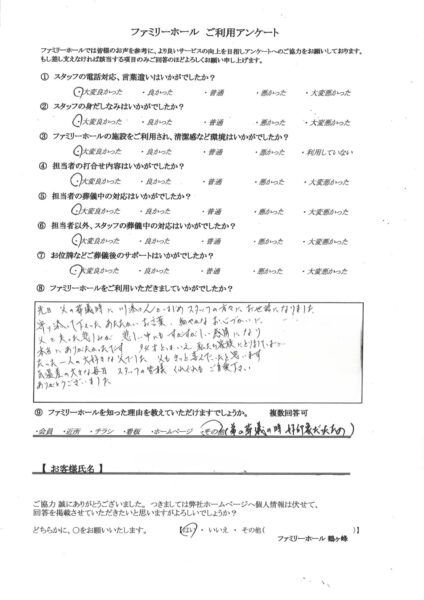 ファミリーホール ご利用アンケート
ファミリーホールでは皆様のお声を参考に、より良いサービスの向上を目指しアンケートへのご協力をお願いしております。
もし差し支えなければ該当する項目のみご回答のほどよろしくお願い申し上げます。
① スタッフの電話対応、言葉遣いはいかがでしたか？
・大変良かった ・良かった ・普通 ・悪かった ・大変悪かった
② スタッフの身だしなみはいかがでしたか？
・大変良かった ・良かった ・普通 ・悪かった ・大変悪かった
③ ファミリーホールの施設をご利用され、清潔感など環境はいかがでしたか？
・大変良かった ・良かった ・普通 ・悪かった ・利用していない
④ 担当者の打合せ内容はいかがでしたか？
・大変良かった ・良かった ・普通 ・悪かった ・大変悪かった
⑤ 担当者の葬儀中の対応はいかがでしたか？
・大変良かった ・良かった ・普通 ・悪かった ・大変悪かった
⑥ 担当者以外、スタッフの葬儀中の対応はいかがでしたか？
・大変良かった ・良かった ・普通 ・悪かった ・大変悪かった
⑦ お位牌などご葬儀後のサポートはいかがでしたか？
・大変良かった ・良かった ・普通 ・悪かった ・大変悪かった
⑧ ファミリーホールをご利用いただきましていかがでしたか？
先日 父の葬儀時に 川添さんをはじめ スタッフの方々に お世話になりました
寄り添って下さった あたたかい お言葉、細やかな お心づかいで
父を失った悲しみが 悲しい中にも すがすがしい 感謝になり
本当に ありがたかったです
たった一人の大好きな父でした 父も きっと喜んだと思います
気温差の大きな毎日 スタッフの皆様 くれぐれも ご自愛下さい
ありがとうございました
⑨ ファミリーホールを知った理由を教えていただけますでしょうか。 複数回答可
・会員 ・近所 ・チラシ ・看板 ・ホームページ ・その他(弟の葬儀の時 好印象だったため)
【 お客様氏名 】
ご協力 誠にありがとうございました。 つきましては弊社ホームページへ個人情報は伏せて、
回答を掲載させていただきたいと思いますがよろしいでしょうか？
どちらかに、○をお願いいたします。 【はい ・ いいえ ・ その他( )】
ファミリーホール 鶴ヶ峰